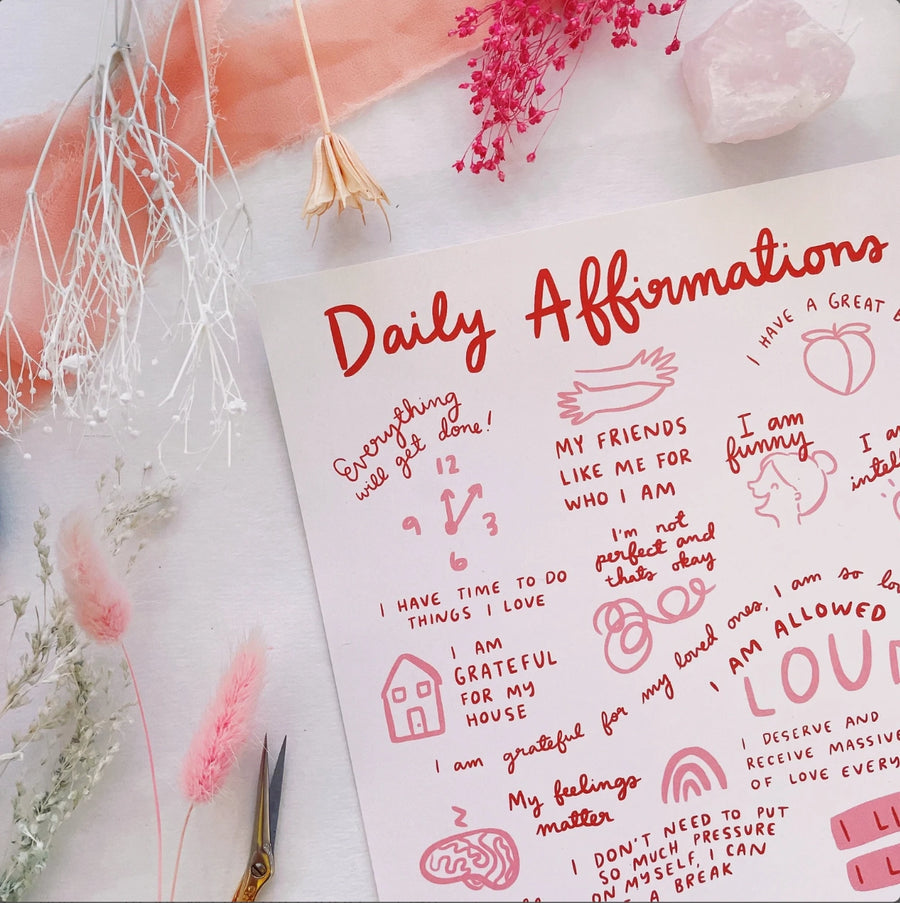 Daily Affirmations
I HAVE A GREAT
Everything
will get done!
12
9
3
6
MY FRIENDS
LIKE ME FOR
WHO I AM
I am
funny
I am
I'm not
perfect and
thats okay
I HAVE TIME TO DO
THINGS I LOVE
I AM
GRATEFUL
FOR MY
HOUSE
I am grateful for my loved ones, I am so
I AM ALLOWED
I DESERVE AND
RECEIVE MASSIVE
OF LOVE
My feelings
matter
I DON'T NEED TO PUT
SO MUCH PRESSURE
ON MYSELF, I CAN
A BREAK
I
I